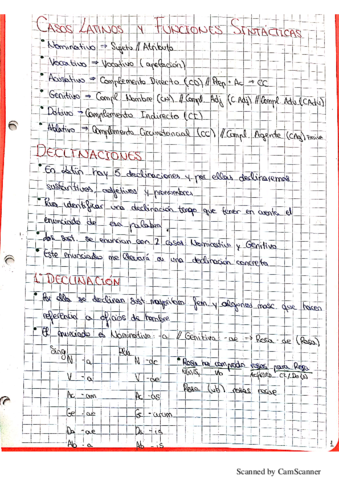 CASOS LATINOS Y FUNCIONES SINTÁCTICAS
• Nominativo → Sujeto // Atributo
• Vocativo → Vocativo (apelación)
• Acusativo → Complemento Directo (CD) // Prep + Ac → CC
• Genitivo → Compl. Nombre (CN) // Compl. Adj (C Adj) // Compl Adv (CAdv)
• Dativo → Complemento Indirecto (CI)
• Ablativo → Complemento Circunstancial (CC) // Compl. Agente (CAg)
DECLINACIONES
• En latín hay 5 declinaciones y por ellas declinaremos
sustantivos, adjetivos y pronombres
• Para identificar una declinación tengo que tener en cuenta el
enunciado de esa palabra
• Los sust. se enuncian con 2 casos Nominativo y Genitivo
• Este enunciado me llevará a una declinación concreta
1. DECLINACIÓN
• Por ella se declinan sust. fem y algunos masc. que hacen
referencia a oficios de hombre
• El enunciado es Nominativo -a // Genitivo -ae → Rosa -ae (Rosa)
Sing Plu
N -a N -ae
V -a V -ae
Ac -am Ac -as
Ge -ae Ge -arum
Da -ae Da -is
Ab -a Ab -is
• Rosa ha comprado rosas para Rosa
Rosa (vb) rosas rosae
1
Scanned by CamScanner